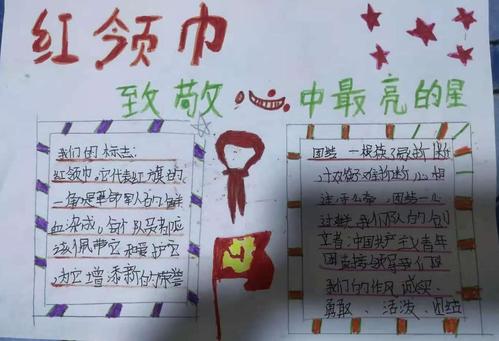 红领巾
致敬心中最亮的星
我们的标志:
红领巾,它代表红旗的
一角是革命军人的鲜
血染成,每个队员都应
该佩带它和爱护它
为它增添新的荣誉
团结 一根筷子易折断
十双筷子难折断心相
连手心牵,团结一心
我们队的创
立者:中国共产主义青年
团
我们的作风诚实、
勇敢、活泼、团结